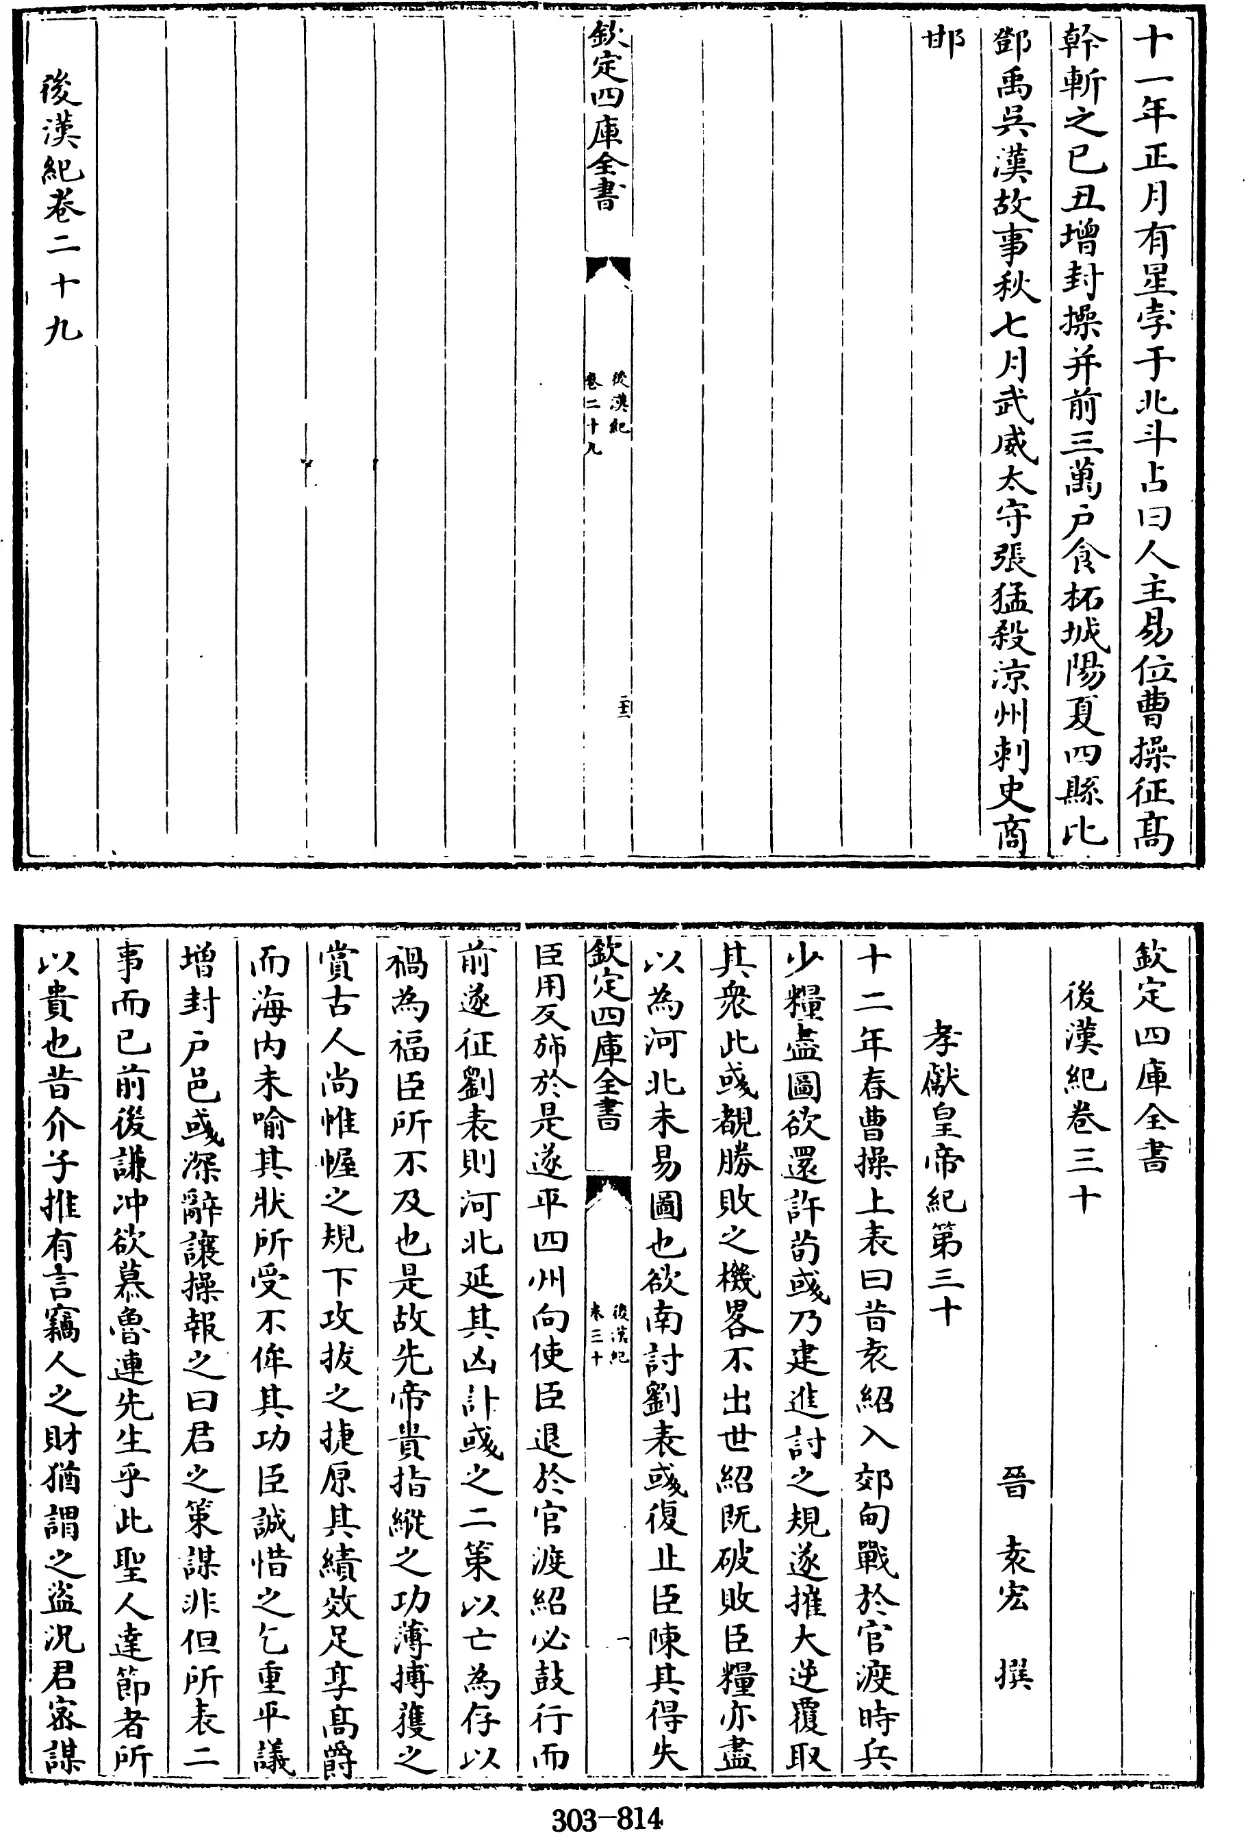 十一年正月有星孛于北斗占曰人主易位曹操征髙
幹斬之已丑增封操并前三萬户食柘城陽夏四縣比
鄧禹吳漢故事秋七月武威太守張猛殺涼州刺史商
邯
欽定四庫全書
後漢紀
卷二十九
後漢紀卷二十九
欽定四庫全書
後漢紀卷三十
晉 袁宏 撰
孝獻皇帝紀第三十
十二年春曹操上表曰昔袁紹入郊甸戰於官渡時兵
少糧盡圖欲還許荀彧乃建進討之規遂摧大逆覆取
其衆此彧覩勝敗之機畧不出世紹既破敗臣糧亦盡
以為河北未易圖也欲南討劉表彧復止臣陳其得失
欽定四庫全書
後漢紀
卷三十
一
臣用反斾於是遂平四州向使臣退於官渡紹必鼓行而
前遂征劉表則河北延其凶計彧之二策以亡為存以
禍為福臣所不及也是故先帝貴指縱之功薄搏獲之
賞古人尚帷幄之規下攻拔之捷原其績效足享髙爵
而海内未喻其狀所受不侔其功臣誠惜之乞重平議
增封户邑彧深辭讓操報之曰君之策謀非但所表二
事而已前後謙冲欲慕魯連先生乎此聖人達節者所
以貴也昔介子推有言竊人之財猶謂之盗況君密謀
303-814